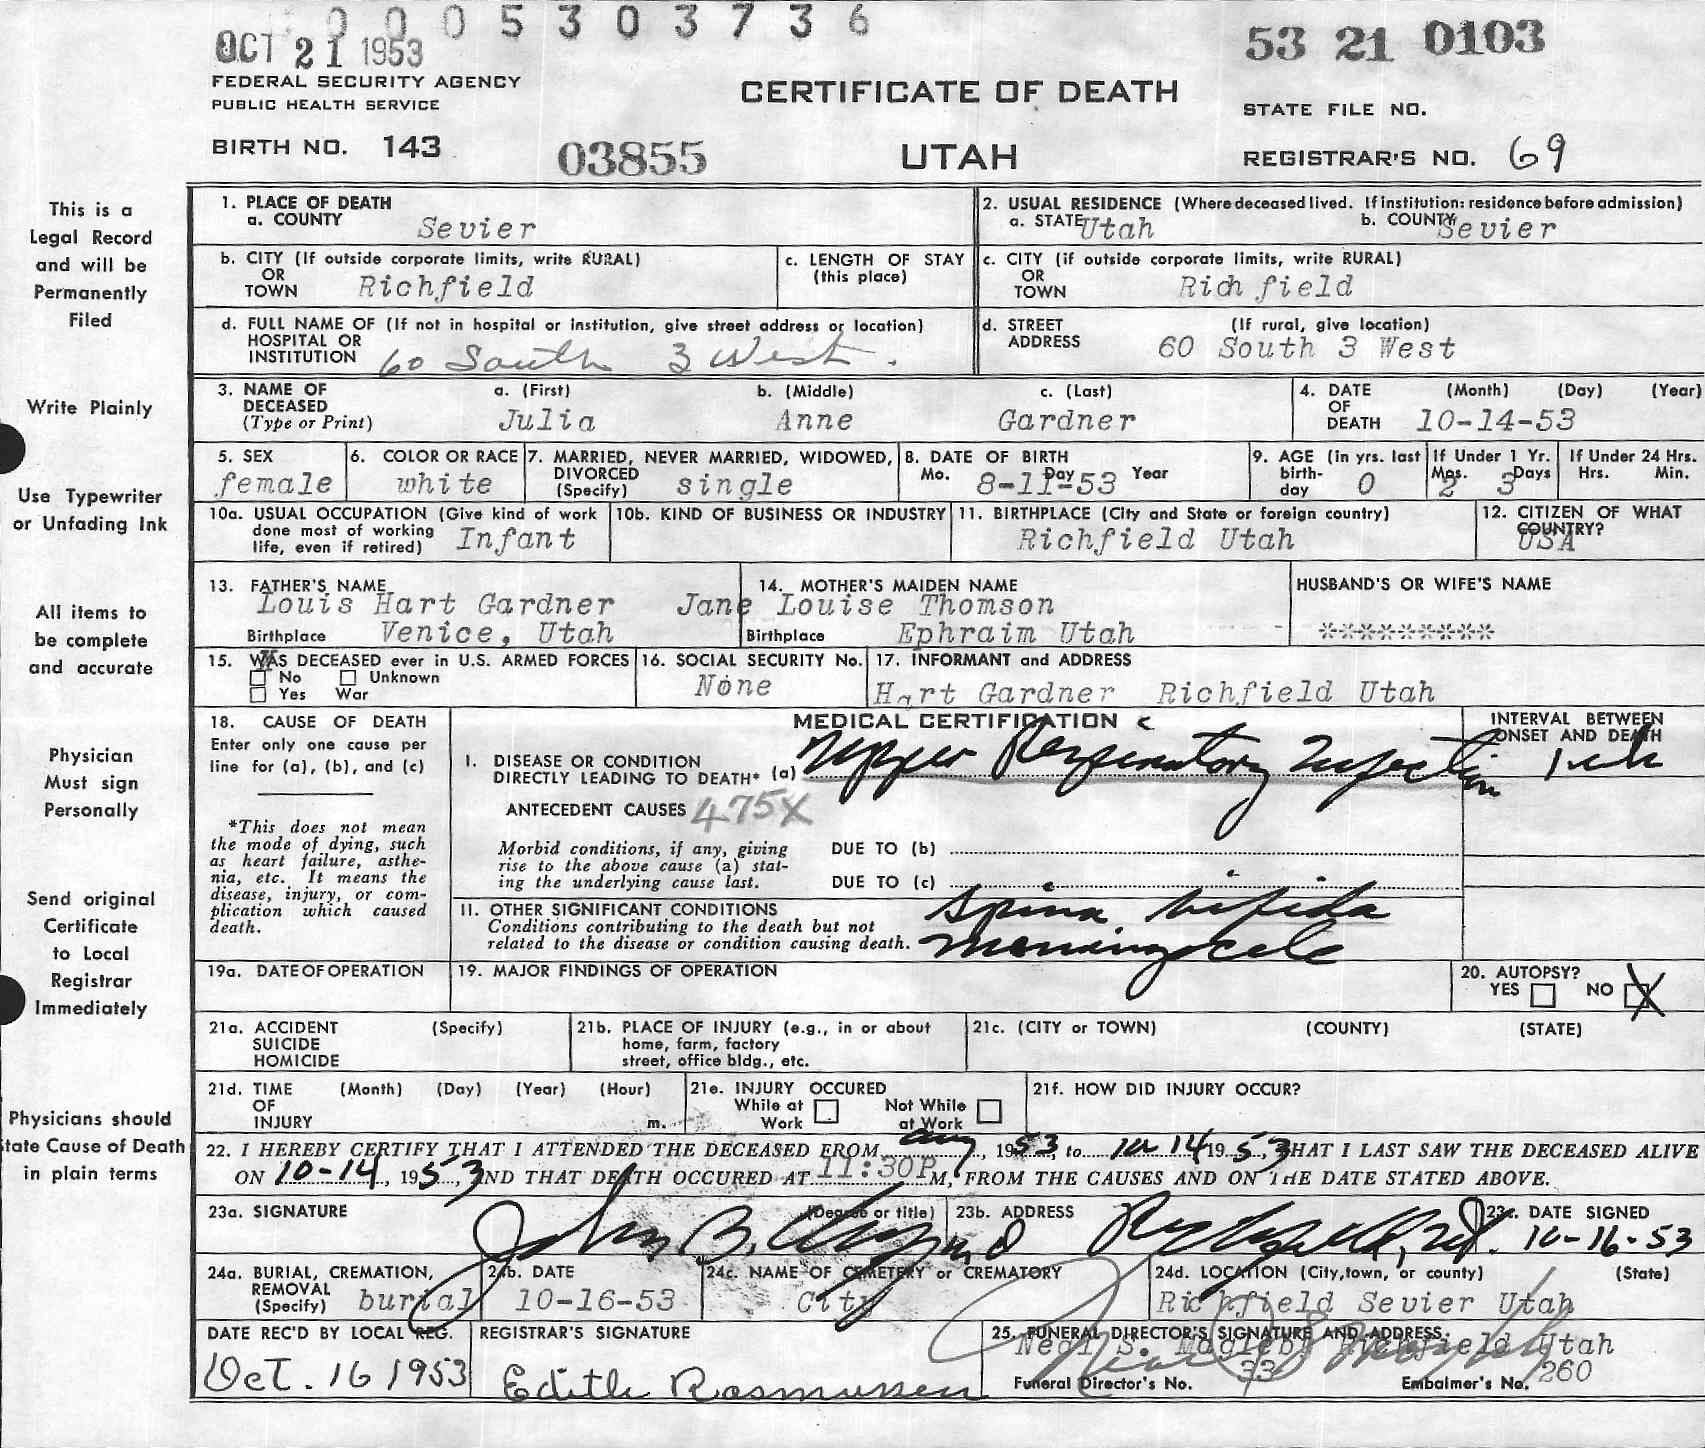 0005303736
OCT 21 1953
53 21 0103
FEDERAL SECURITY AGENCY
PUBLIC HEALTH SERVICE
CERTIFICATE OF DEATH
STATE FILE NO.
BIRTH NO. 143
03855
UTAH
REGISTRAR'S NO. 69
This is a
Legal Record
and will be
Permanently
Filed
Write Plainly
Use Typewriter
or Unfading Ink
All items to
be complete
and accurate
Physician
Must sign
Personally
Send original
Certificate
to Local
Registrar
Immediately
Physicians should
tate Cause of Death
in plain terms
1. PLACE OF DEATH
a. COUNTY Sevier
2. USUAL RESIDENCE (Where deceased lived. If institution: residence before admission)
a. STATE Utah b. COUNTY Sevier
b. CITY (If outside corporate limits, write RURAL)
OR
TOWN Richfield
c. LENGTH OF STAY
(this place)
c. CITY (if outside corporate limits, write RURAL)
OR
TOWN Richfield
d. FULL NAME OF (If not in hospital or institution, give street address or location)
HOSPITAL OR
INSTITUTION 60 South 3 West.
d. STREET (If rural, give location)
ADDRESS 60 South 3 West
3. NAME OF DECEASED (Type or Print)
a. (First) b. (Middle) c. (Last)
Julia Anne Gardner
4. DATE OF DEATH (Month) (Day) (Year)
10-14-53
5. SEX
female
6. COLOR OR RACE
white
7. MARRIED, NEVER MARRIED, WIDOWED,
DIVORCED
(Specify) single
8. DATE OF BIRTH
Mo. Day Year
8-11-53
9. AGE (in yrs. last
birth-
day 0
If Under 1 Yr.
Mos. Days
2 3
If Under 24 Hrs.
Hrs. Min.
10a. USUAL OCCUPATION (Give kind of work
done most of working
life, even if retired) Infant
10b. KIND OF BUSINESS OR INDUSTRY
11. BIRTHPLACE (City and State or foreign country)
Richfield Utah
12. CITIZEN OF WHAT
COUNTRY?
USA
13. FATHER'S NAME
Louis Hart Gardner
Birthplace Venice, Utah
14. MOTHER'S MAIDEN NAME
Jane Louise Thomson
Birthplace Ephraim Utah
HUSBAND'S OR WIFE'S NAME
*********
15. WAS DECEASED ever in U.S. ARMED FORCES
No Unknown
Yes War
16. SOCIAL SECURITY No.
None
17. INFORMANT and ADDRESS
Hart Gardner Richfield Utah
18. CAUSE OF DEATH
Enter only one cause per
line for (a), (b), and (c)
*This does not mean
the mode of dying, such
as heart failure, asthe-
nia, etc. It means the
disease, injury, or com-
plication which caused
death.
MEDICAL CERTIFICATION
INTERVAL BETWEEN
ONSET AND DEATH
I. DISEASE OR CONDITION
DIRECTLY LEADING TO DEATH* (a) Upper Respiratory Infection
ANTECEDENT CAUSES 475X
Morbid conditions, if any, giving
rise to the above cause (a) stat-
ing the underlying cause last.
DUE TO (b)
DUE TO (c)
II. OTHER SIGNIFICANT CONDITIONS
Conditions contributing to the death but not
related to the disease or condition causing death.
Spina bifida
meningocele
19a. DATE OF OPERATION
19. MAJOR FINDINGS OF OPERATION
20. AUTOPSY?
YES NO X
21a. ACCIDENT (Specify)
SUICIDE
HOMICIDE
21b. PLACE OF INJURY (e.g., in or about
home, farm, factory
street, office bldg., etc.
21c. (CITY or TOWN) (COUNTY) (STATE)
21d. TIME (Month) (Day) (Year) (Hour)
OF
INJURY m.
21e. INJURY OCCURED
While at Work
Not While at Work
21f. HOW DID INJURY OCCUR?
22. I HEREBY CERTIFY THAT I ATTENDED THE DECEASED FROM Aug, 1953, to 10 14 1953, THAT I LAST SAW THE DECEASED ALIVE
ON 10-14, 1953, AND THAT DEATH OCCURED AT 11:30P M, FROM THE CAUSES AND ON THE DATE STATED ABOVE.
23a. SIGNATURE (Degree or title)
John B.
23b. ADDRESS
Richfield, Ut.
23c. DATE SIGNED
10-16-53
24a. BURIAL, CREMATION,
REMOVAL
(Specify) burial
24b. DATE
10-16-53
24c. NAME OF CEMETERY or CREMATORY
City
24d. LOCATION (City, town, or county) (State)
Richfield Sevier Utah
DATE REC'D BY LOCAL REG.
Oct. 16 1953
REGISTRAR'S SIGNATURE
Edith Rasmussen
25. FUNERAL DIRECTOR'S SIGNATURE AND ADDRESS
Neal S. Magleby Richfield Utah
Funeral Director's No. 33
Embalmer's No. 260